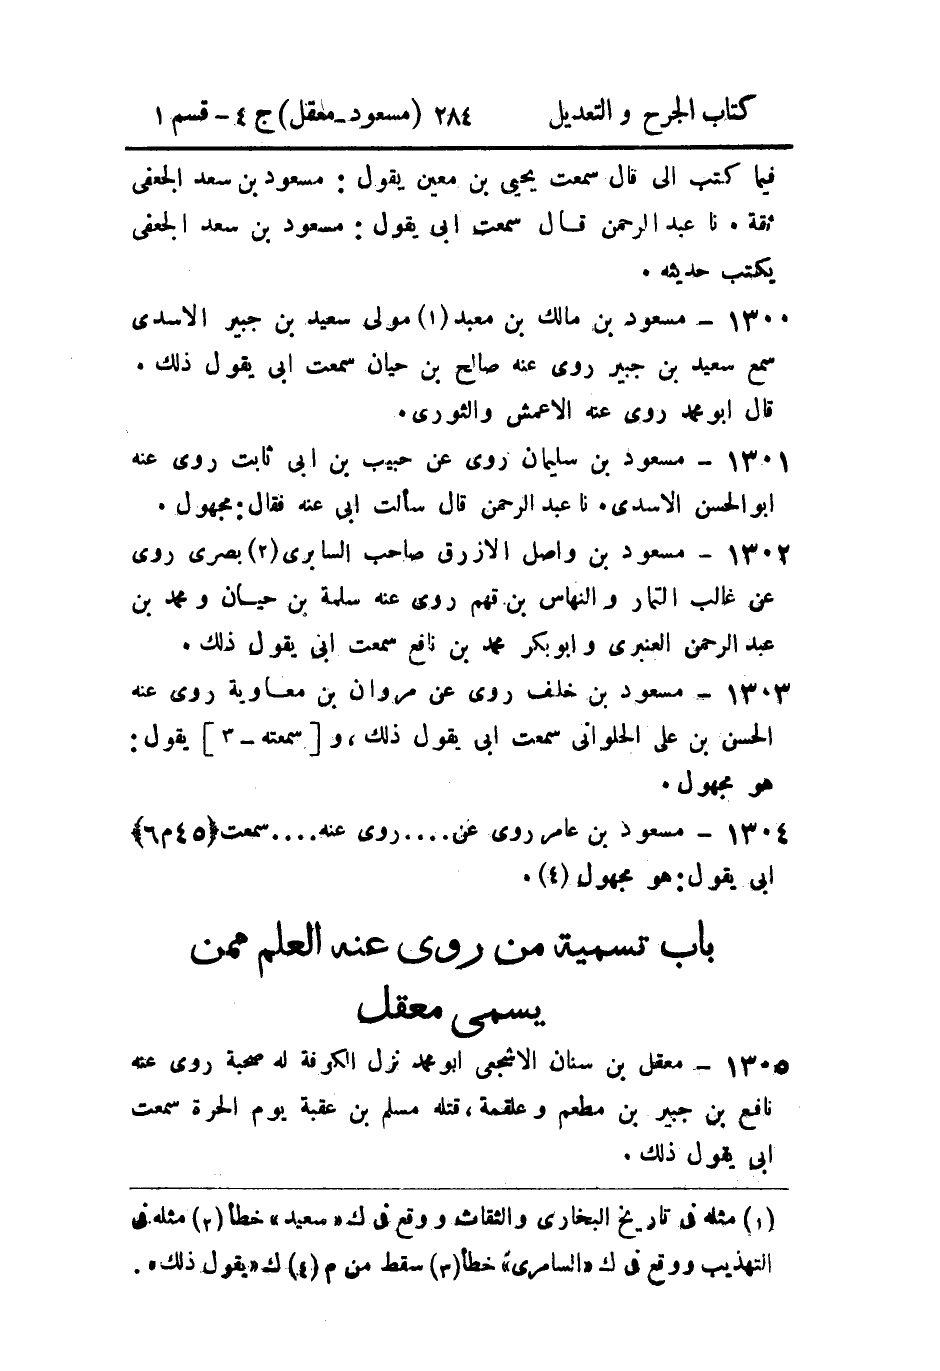 كتاب الجرح و التعديل ٢٨٤ (مسعود ـ معقل) ج ٤ - قسم ١
فيما كتب الى قال سمعت يحيى بن معين يقول : مسعود بن سعد الجعفى
ثقة . نا عبد الرحمن قال سمعت ابى يقول : مسعود بن سعد الجعفى
يكتب حديثه .
١٣٠٠ - مسعود بن مالك بن معبد (١) مولى سعيد بن جبير الاسدى
سمع سعيد بن جبير روى عنه صالح بن حيان سمعت ابى يقول ذلك .
قال ابو محمد روى عنه الاعمش والثورى .
١٣٠١ - مسعود بن سليمان روى عن حبيب بن ابى ثابت روى عنه
ابو الحسن الاسدى . نا عبد الرحمن قال سألت ابى عنه فقال : مجهول .
١٣٠٢ - مسعود بن واصل الازرق صاحب السابرى (٢) بصرى روى
عن غالب التمار و النهاس بن قهم روى عنه سلمة بن حيان و محمد بن
عبد الرحمن العنبرى و ابو بكر محمد بن نافع سمعت ابى يقول ذلك .
١٣٠٣ - مسعود بن خلف روى عن مروان بن معاوية روى عنه
الحسن بن على الحلوانى سمعت ابى يقول ذلك ، و [ سمعته - ٣ ] يقول :
هو مجهول .
١٣٠٤ - مسعود بن عامر روى عن .... روى عنه .... سمعت ﴿٤٥ م ٦﴾
ابى يقول : هو مجهول (٤) .
باب تسمية من روى عنه العلم ممن
يسمى معقل
١٣٠٥ - معقل بن سنان الاشجعى ابو محمد نزل الكوفة له صحبة روى عنه
نافع بن جبير بن مطعم و علقمة ، قتله مسلم بن عقبة يوم الحرة سمعت
ابى يقول ذلك .
(١) مثله فى تاريخ البخارى والثقات و وقع فى ك «سعيد» خطأ (٢) مثله فى
التهذيب ووقع فى ك «السامرى» خطأ (٣) سقط من م (٤) ك «يقول ذلك» .